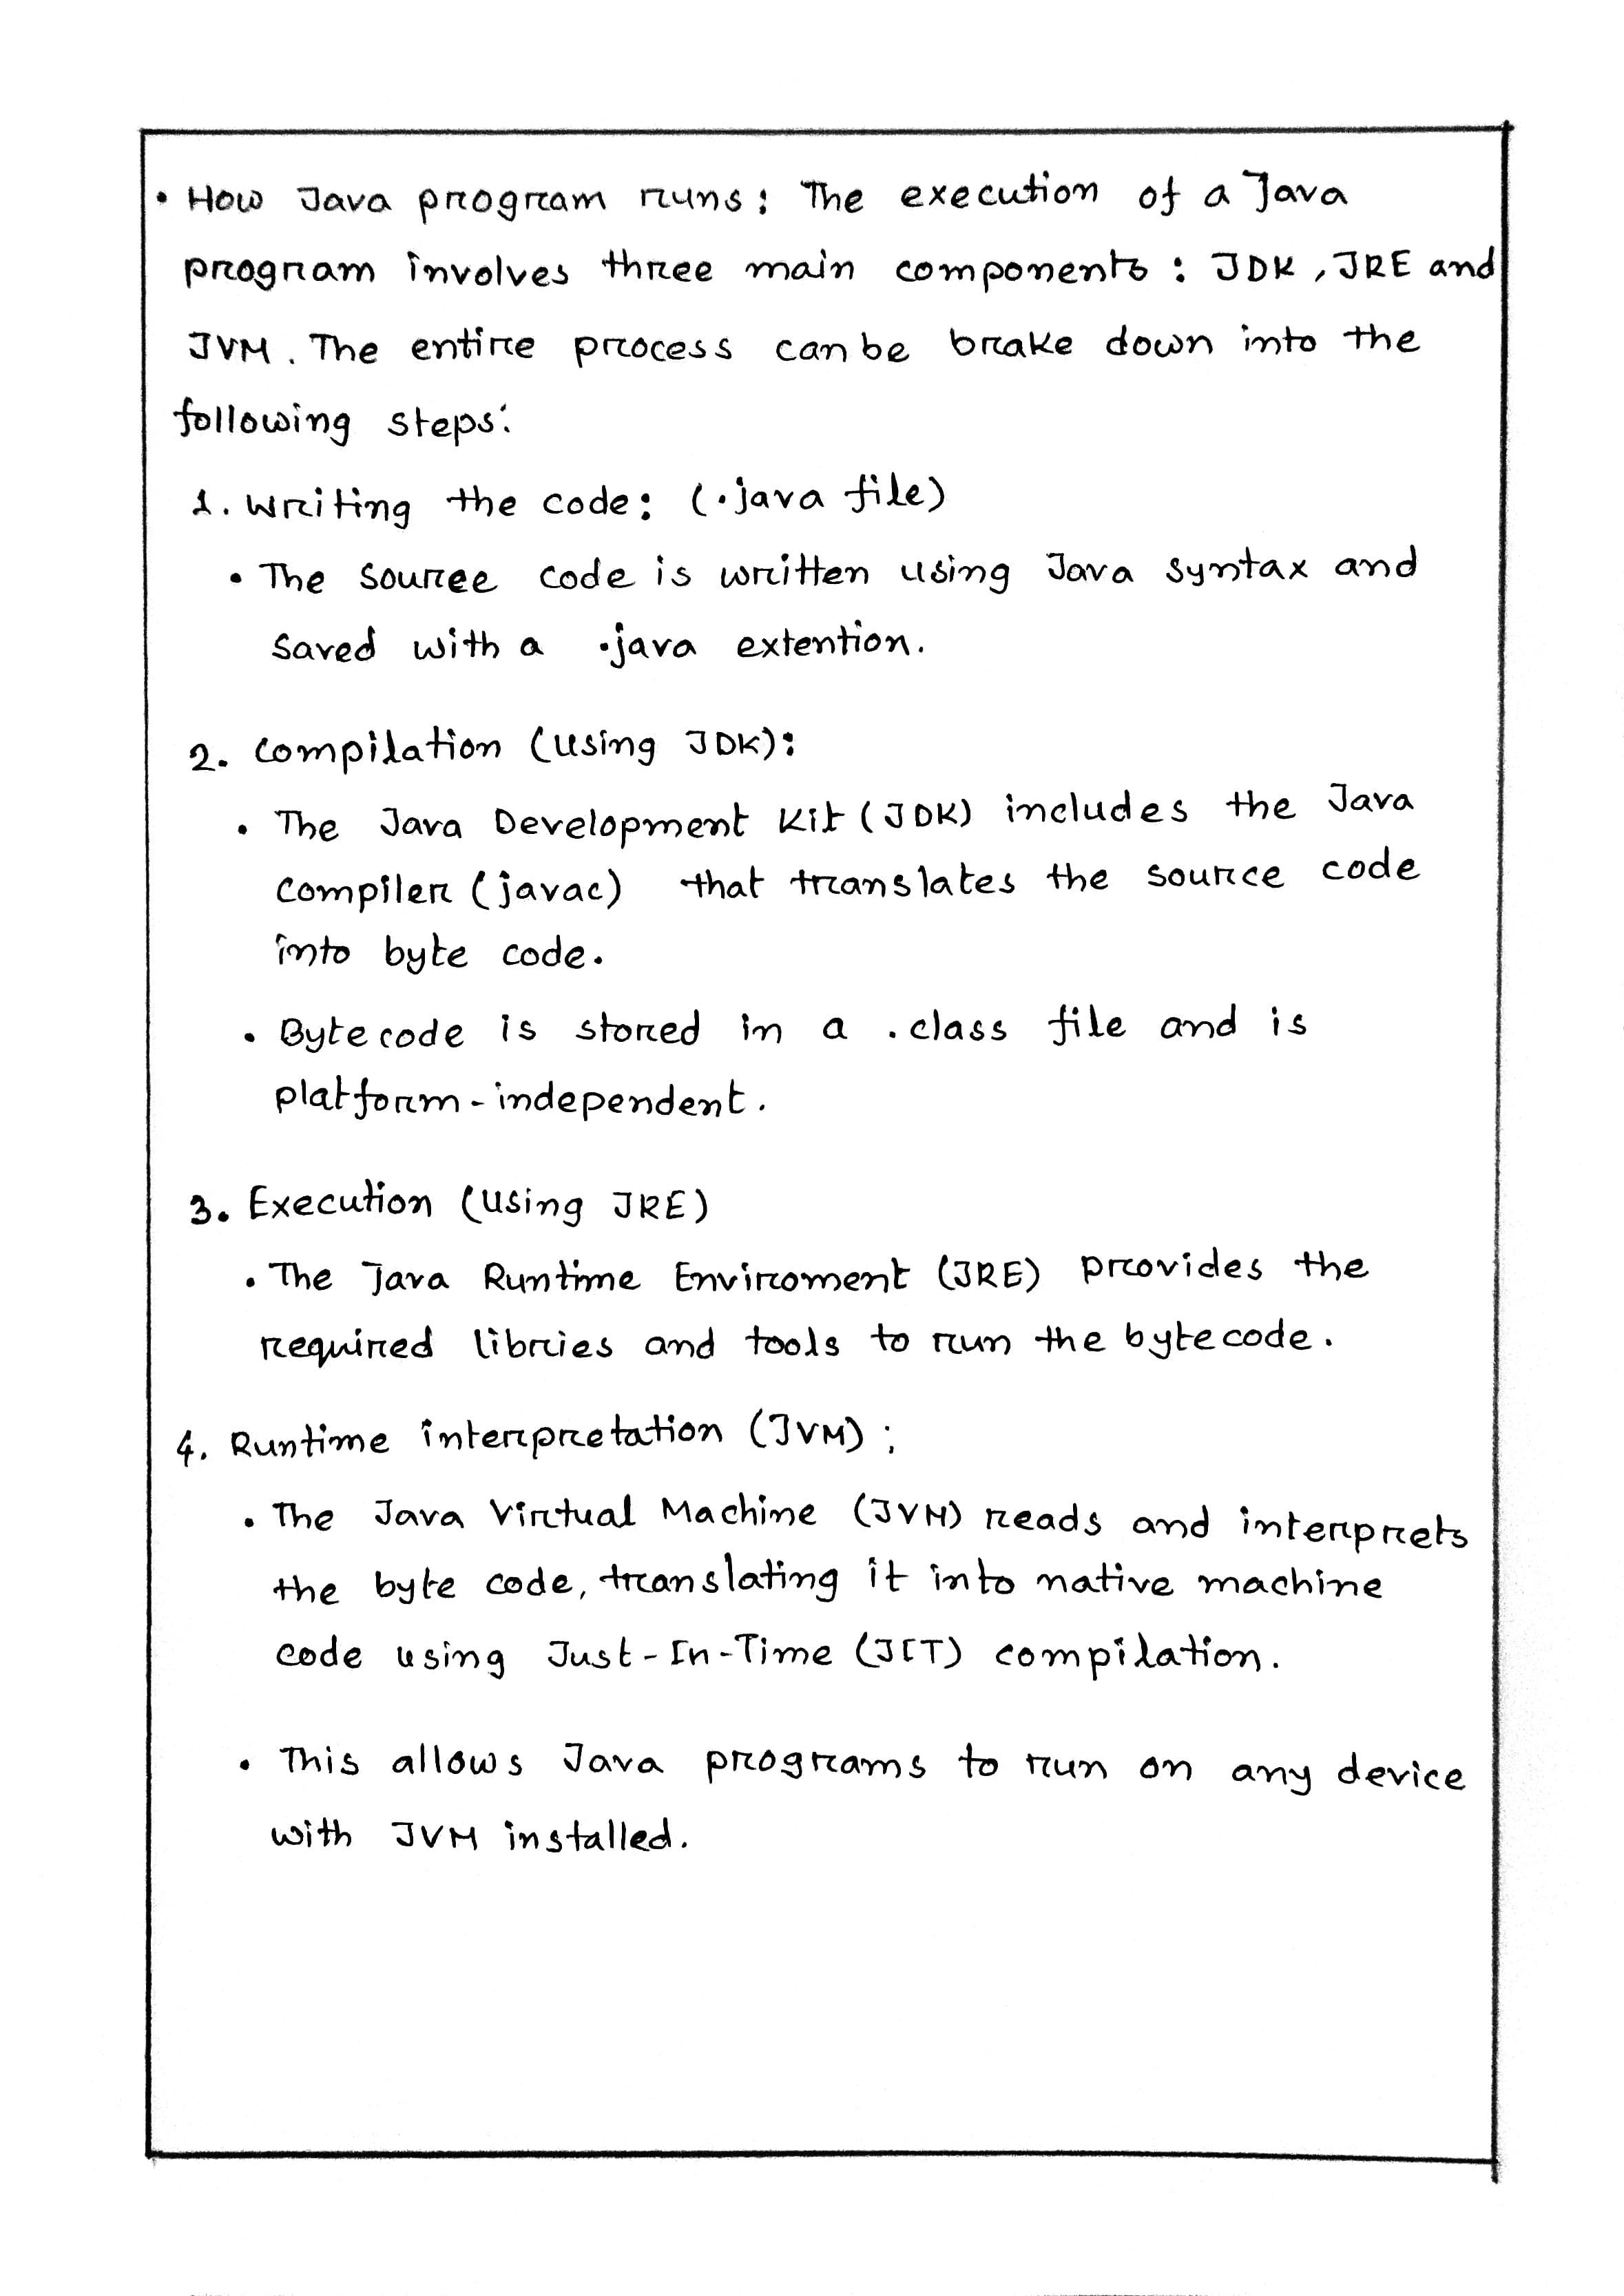 • How Java program runs: The execution of a Java
program involves three main components : JDK, JRE and
JVM. The entire process can be brake down into the
following steps:
1. Writing the code: (.java file)
• The source code is written using Java syntax and
saved with a .java extention.
2. Compilation (Using JDK):
• The Java Development Kit (JDK) includes the Java
Compiler (javac) that translates the source code
into byte code.
• Byte code is stored in a .class file and is
platform-independent.
3. Execution (Using JRE)
• The Java Runtime Enviroment (JRE) provides the
required libries and tools to run the byte code.
4. Runtime interpretation (JVM);
• The Java Virtual Machine (JVM) reads and interprets
the byte code, translating it into native machine
code using Just-In-Time (JIT) compilation.
• This allows Java programs to run on any device
with JVM installed.